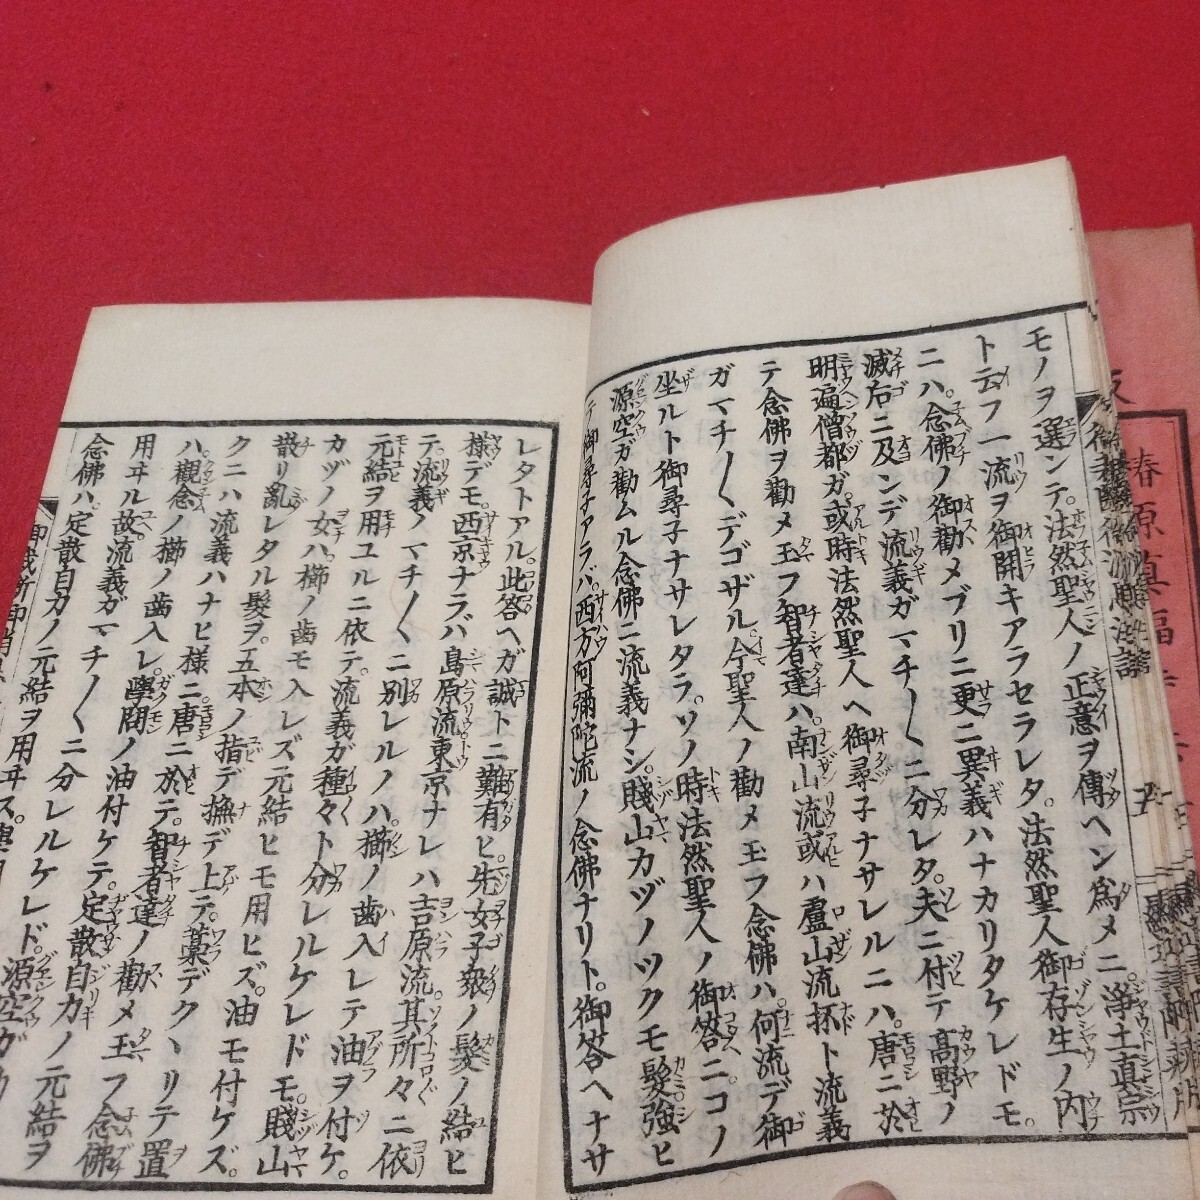 モノヲ選ンテ。法然聖人ノ正意ヲ傳ヘン爲メニ。淨土眞宗
ト云フ一流ヲ御開キアラセラレタ。法然聖人御存生ノ内
ニハ。念佛ノ御勸メブリニ更ニ異義ハナカリタケレドモ。
滅后ニ及ンデ流義ガマチ〱ニ分レタ。夫ニ付テ高野ノ
明遍僧都ガ。或時法然聖人ヘ御尋子ナサレルニハ。唐ニ於
テ念佛ヲ勸メ玉フ智者達ハ。南山流或ハ盧山流抔ト流義
ガマチ〱デゴザル今聖人ノ勸メ玉フ念佛ハ。何流デ御
坐ルト御尋子ナサレタラ。ソノ時法然聖人ノ御答ニコノ
源空ガ勸ムル念佛ニ流義ナシ。賤山カヅノツクモ髮強ヒ
テ御尋子アラバ。西方阿彌陀流ノ念佛ナリト。御答ヘナサ
レタトアル。此答ヘガ誠トニ難有ヒ。先女子衆ノ髮ノ結ヒ
樣デモ。西京ナラバ島原流東京ナレハ吉原流。其所々ニ依
テ。流義ノマチ〱ニ別レルノハ。櫛ノ齒入レテ油ヲ付ケ。
元結ヲ用ユルニ依テ。流義ガ種々ト分レルケレドモ。賤山
カヅノ女ハ。櫛ノ齒モ入レズ元結ヒモ用ヒズ。油モ付ケズ。
散リ亂レタル髮ヲ。五本ノ指デ撫デ上テ。藁デクヽリテ置
クニハ流義ハナヒ樣ニ。唐ニ於テ。智者達ノ勸メ玉フ念佛
ハ。觀念ノ櫛ノ齒入レ。學問ノ油付ケテ。定散自力ノ元結ヲ
用ヰル故。流義ガマチ〱ニ分レルケレド。源空ガ
念佛ハ。定散自力ノ元結ヲ用ヰス。
春原眞福寺